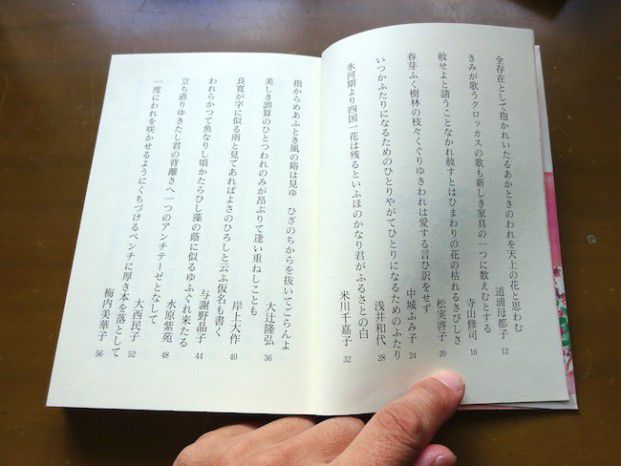 全存在として抱かれいたるあかときのわれを天上の花と思わむ
道浦母都子 12
きみが歌うクロッカスの歌も新しき家具の一つに数えむとする
寺山修司 16
赦せよと請うことなかれ赦すとはひまわりの花の枯れるさびしさ
松実啓子 20
春芽ふく樹林の枝々くぐりゆきわれは愛する言ひ訳をせず
中城ふみ子 24
いつかふたりになるためのひとりやがてひとりになるためのふたり
浅井和代 28
氷河期より四国一花は残るといふほのかなり君がふるさとの白
米川千嘉子 32
指からめあふとき風の谿は見ゆ ひざのちからを抜いてごらんよ
大辻隆弘 36
美しき誤算のひとつわれのみが昂ぶりて逢い重ねしことも
岸上大作 40
良寛が字に似る雨と見てあればよさのひろしと云ふ仮名も書く
与謝野晶子 44
われらかつて魚なりし頃かたらひし藻の蔭に似るゆふぐれ来たる
水原紫苑 48
立ち直りゆきたし君の背離さへ一つのアンチテーゼとなして
大西民子 52
一度にわれを咲かせるようにくちづけるベンチに厚き本を落として
梅内美華子 56